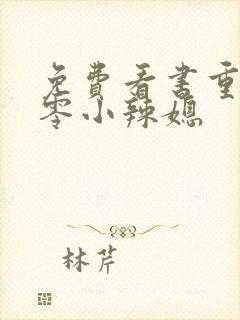 免费看书重
零小辣媳
林芹